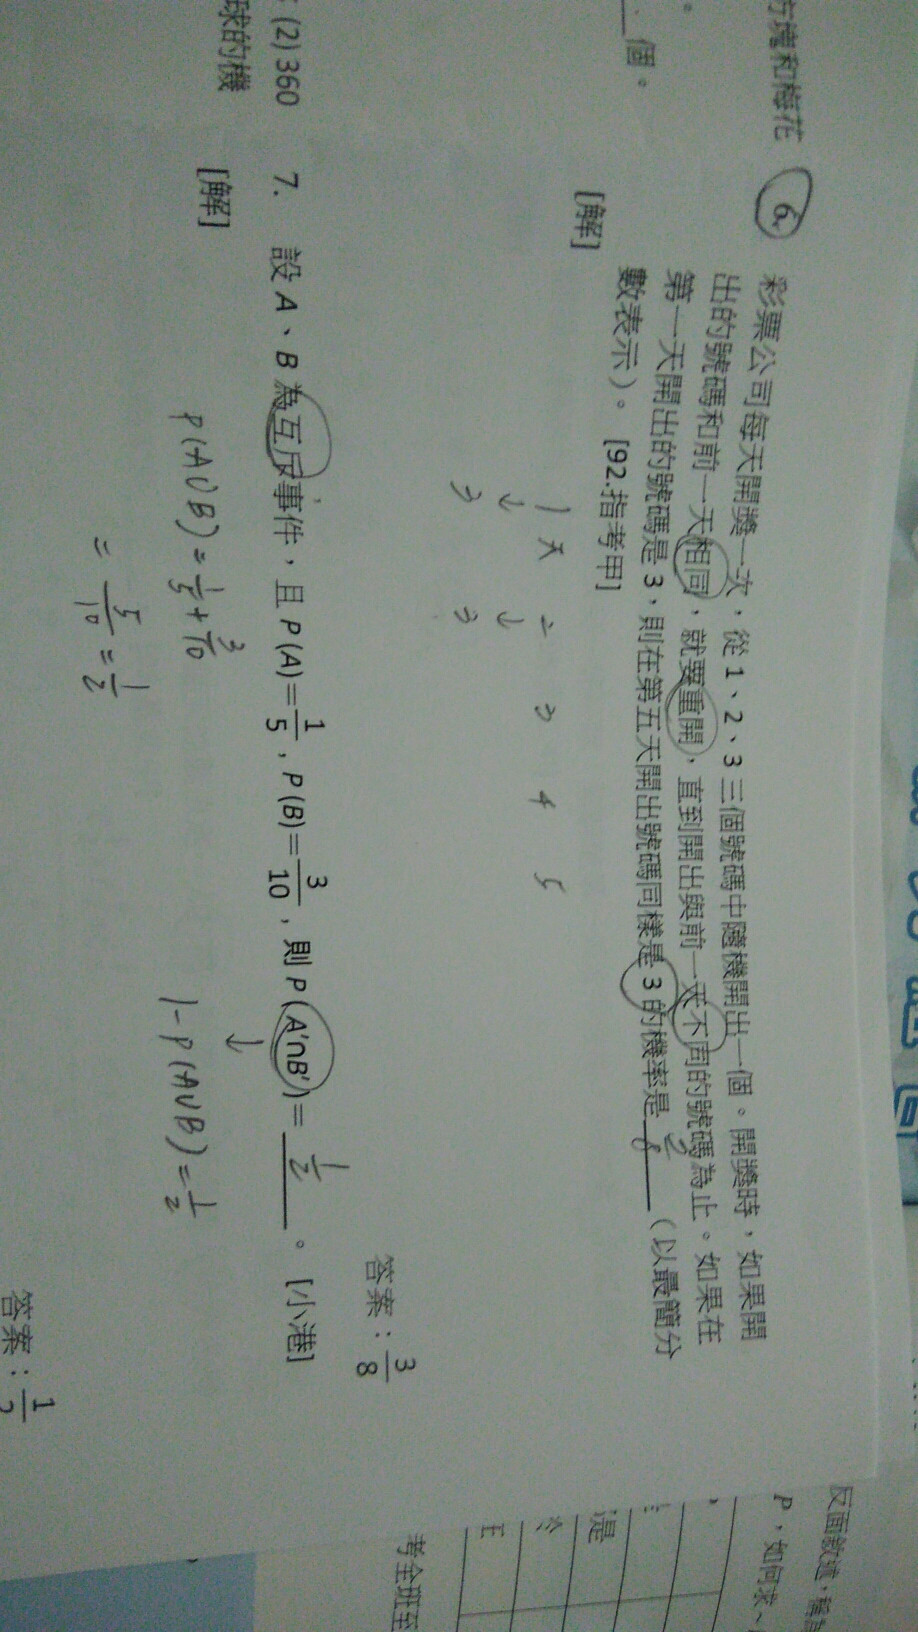 方塊和梅花
個。
(2) 360
球的機
6. 彩票公司每天開獎一次，從 1、2、3 三個號碼中隨機開出一個。開獎時，如果開
出的號碼和前一天相同，就要重開，直到開出與前一天不同的號碼為止。如果在
第一天開出的號碼是 3，則在第五天開出號碼同樣是 3 的機率是 3/8 （以最簡分
數表示）。 [92.指考甲]
[解]
1天 二 3 4 5
↓ ↓
3 3
答案：3/8
7. 設 A、B 為互斥事件，且 P(A)=1/5，P(B)=3/10，則 P(A'∩B')= 1/2 。[小港]
[解]
↓
P(A∪B)=1/5+3/10
=5/10=1/2
1-P(A∪B)=1/2
答案：1/2
反面敘述，
P，如何求～
是
考全班至